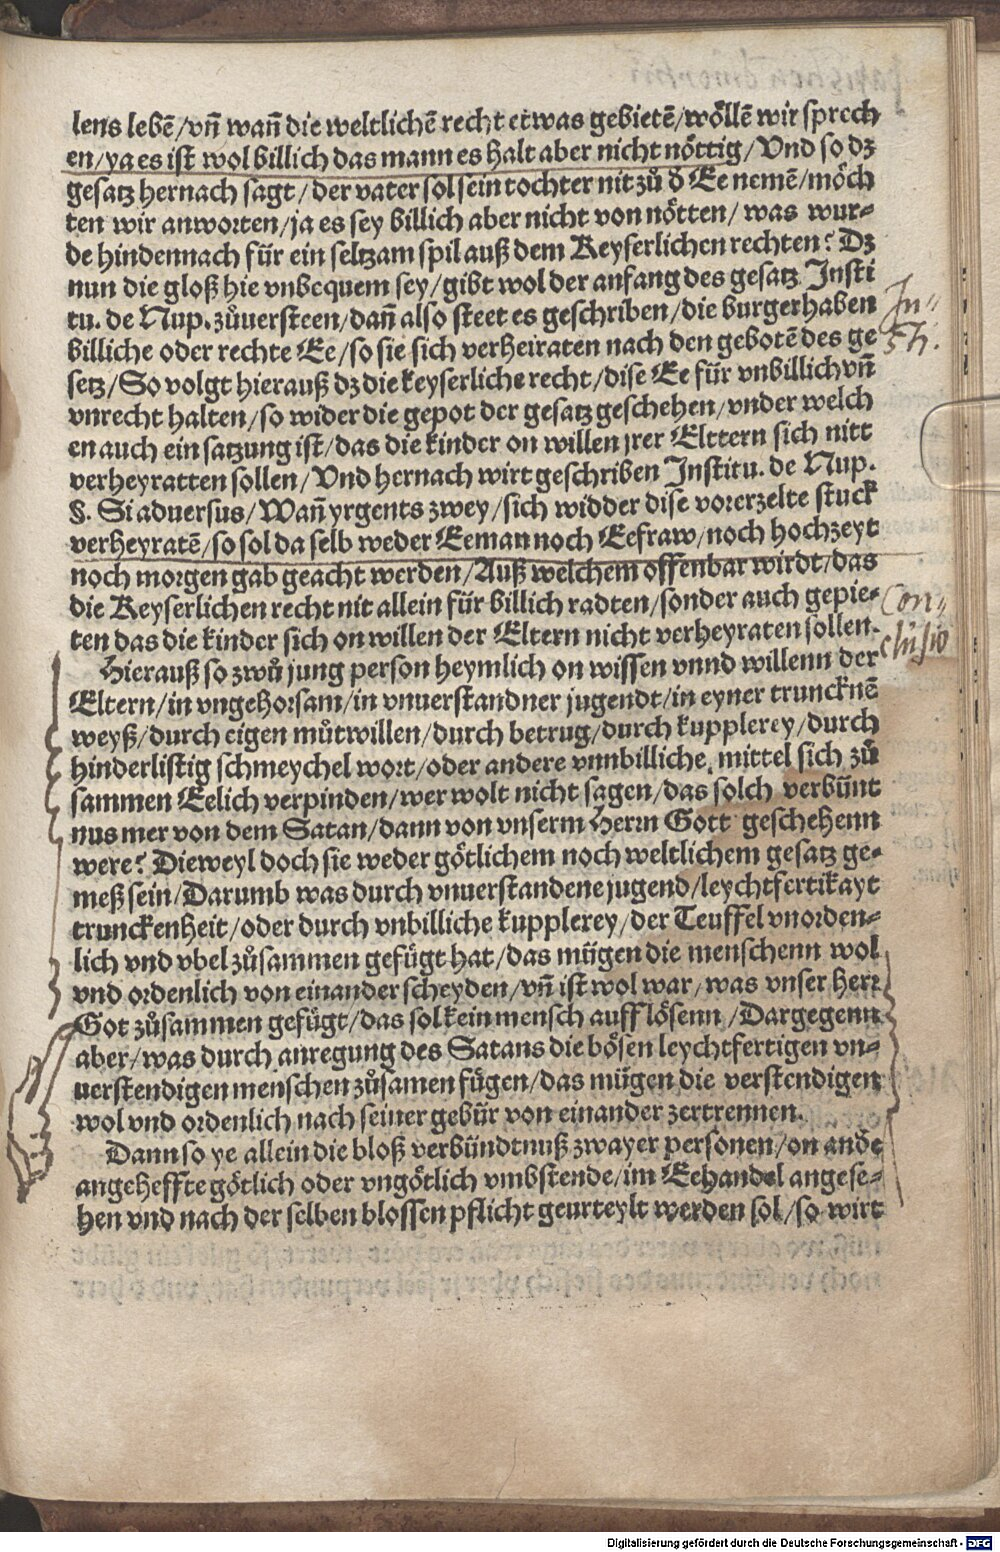 lens lebẽ/vñ wañ die weltlichẽ recht etwas gebietẽ/wöllẽ wir sprech
en/ya es ist wol billich das mann es halt aber nicht nöttig/Vnd so dz
gesatz hernach sagt/der vater sol sein tochter nit zů d̕ Ee nemẽ/möch
ten wir anworten/ja es sey billich aber nicht von nötten/was wur⸗
de hindennach für ein seltzam spil auß dem Keyserlichen rechten? Dz
nun die gloß hie vnbequem sey/gibt wol der anfang des gesatz Insti
tu. de Nup. zůuersteen/dañ also steet es geschriben/die burger haben
billiche oder rechte Ee/so sie sich verheiraten nach den gebotẽ des ge
setz/So volgt hierauß dz die keyserliche recht/dise Ee für vnbillich vñ
vnrecht halten/so wider die gepot der gesatz geschehen/vnder welch
en auch ein satzung ist/das die kinder on willen jrer Elttern sich nitt
verheyratten sollen/Vnd hernach wirt geschriben Institu. de Nup.
§. Si aduersus/Wañ yrgents zwey/sich widder dise vorerzelte stuck
verheyratẽ/so sol da selb weder Eeman noch Eefraw/noch hochzeyt
noch morgen gab geacht werden/Auß welchem offenbar wirdt/das
die Keyserlichen recht nit allein für billich radten/sonder auch gepie⸗
ten das die kinder sich on willen der Eltern nicht verheyraten sollen.
Hierauß so zwů jung person heymlich on wissen vnnd willenn der
Eltern/in vngehorsam/in vnuerstandner jugendt/in eyner truncknẽ
weyß/durch eigen můtwillen/durch betrug/durch kupplerey/durch
hinderlistig schmeychel wort/oder andere vnnbilliche mittel sich zů
sammen Eelich verpinden/wer wolt nicht sagen/das solch verbünt
nus mer von dem Satan/dann von vnserm Herrn Gott geschehenn
were? Dieweyl doch sie weder götlichem noch weltlichem gesatz ge⸗
meß sein/Darumb was durch vnuerstandene jugend/leychtfertikayt
trunckenheit/oder durch vnbilliche kupplerey/der Teuffel vnorden⸗
lich vnd vbel zůsammen gefügt hat/das mügen die menschenn wol
vnd ordenlich von einander scheyden/vñ ist wol war/was vnser herr
Got zůsammen gefügt/das sol kein mensch aufflösenn/Dargegenn
aber/was durch anregung des Satans die bösen leychtfertigen vn⸗
uerstendigen menschen zůsamen fügen/das mügen die verstendigen
wol vnd ordenlich nach seiner gebür von einander zertrennen.
Dann so ye allein die bloß verbündtnuß zwayer personen/on andẽ
angeheffte götlich oder vngötlich vmbstende/im Eehandel angese⸗
hen vnd nach der selben blossen pflicht geurteylt werden sol/so wirt
In⸗
sti.
Con⸗
clusio
Digitalisierung gefördert durch die Deutsche Forschungsgemeinschaft - DFG